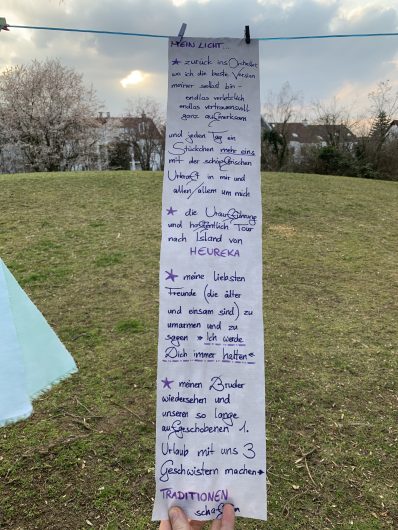 MEIN LICHT...
* zurück ins Orchester
wo ich die beste Version
meiner selbst bin -
endlos verletzlich
endlos vertrauensvoll
ganz aufmerksam
und jeden Tag ein
Stückchen mehr eins
mit der schöpferischen
Urkraft in mir und
allen/allem um mich
* die Uraufführung
und hoffentlich Tour
nach Island von
HEUREKA
* meine liebsten
Freunde (die älter
und einsam sind) zu
umarmen und zu
sagen "Ich werde
Dich immer halten"
* meinen Bruder
wiedersehen und
unseren so lange
aufgeschobenen 1.
Urlaub mit uns 3
Geschwistern machen*
TRADITIONEN
schaffen